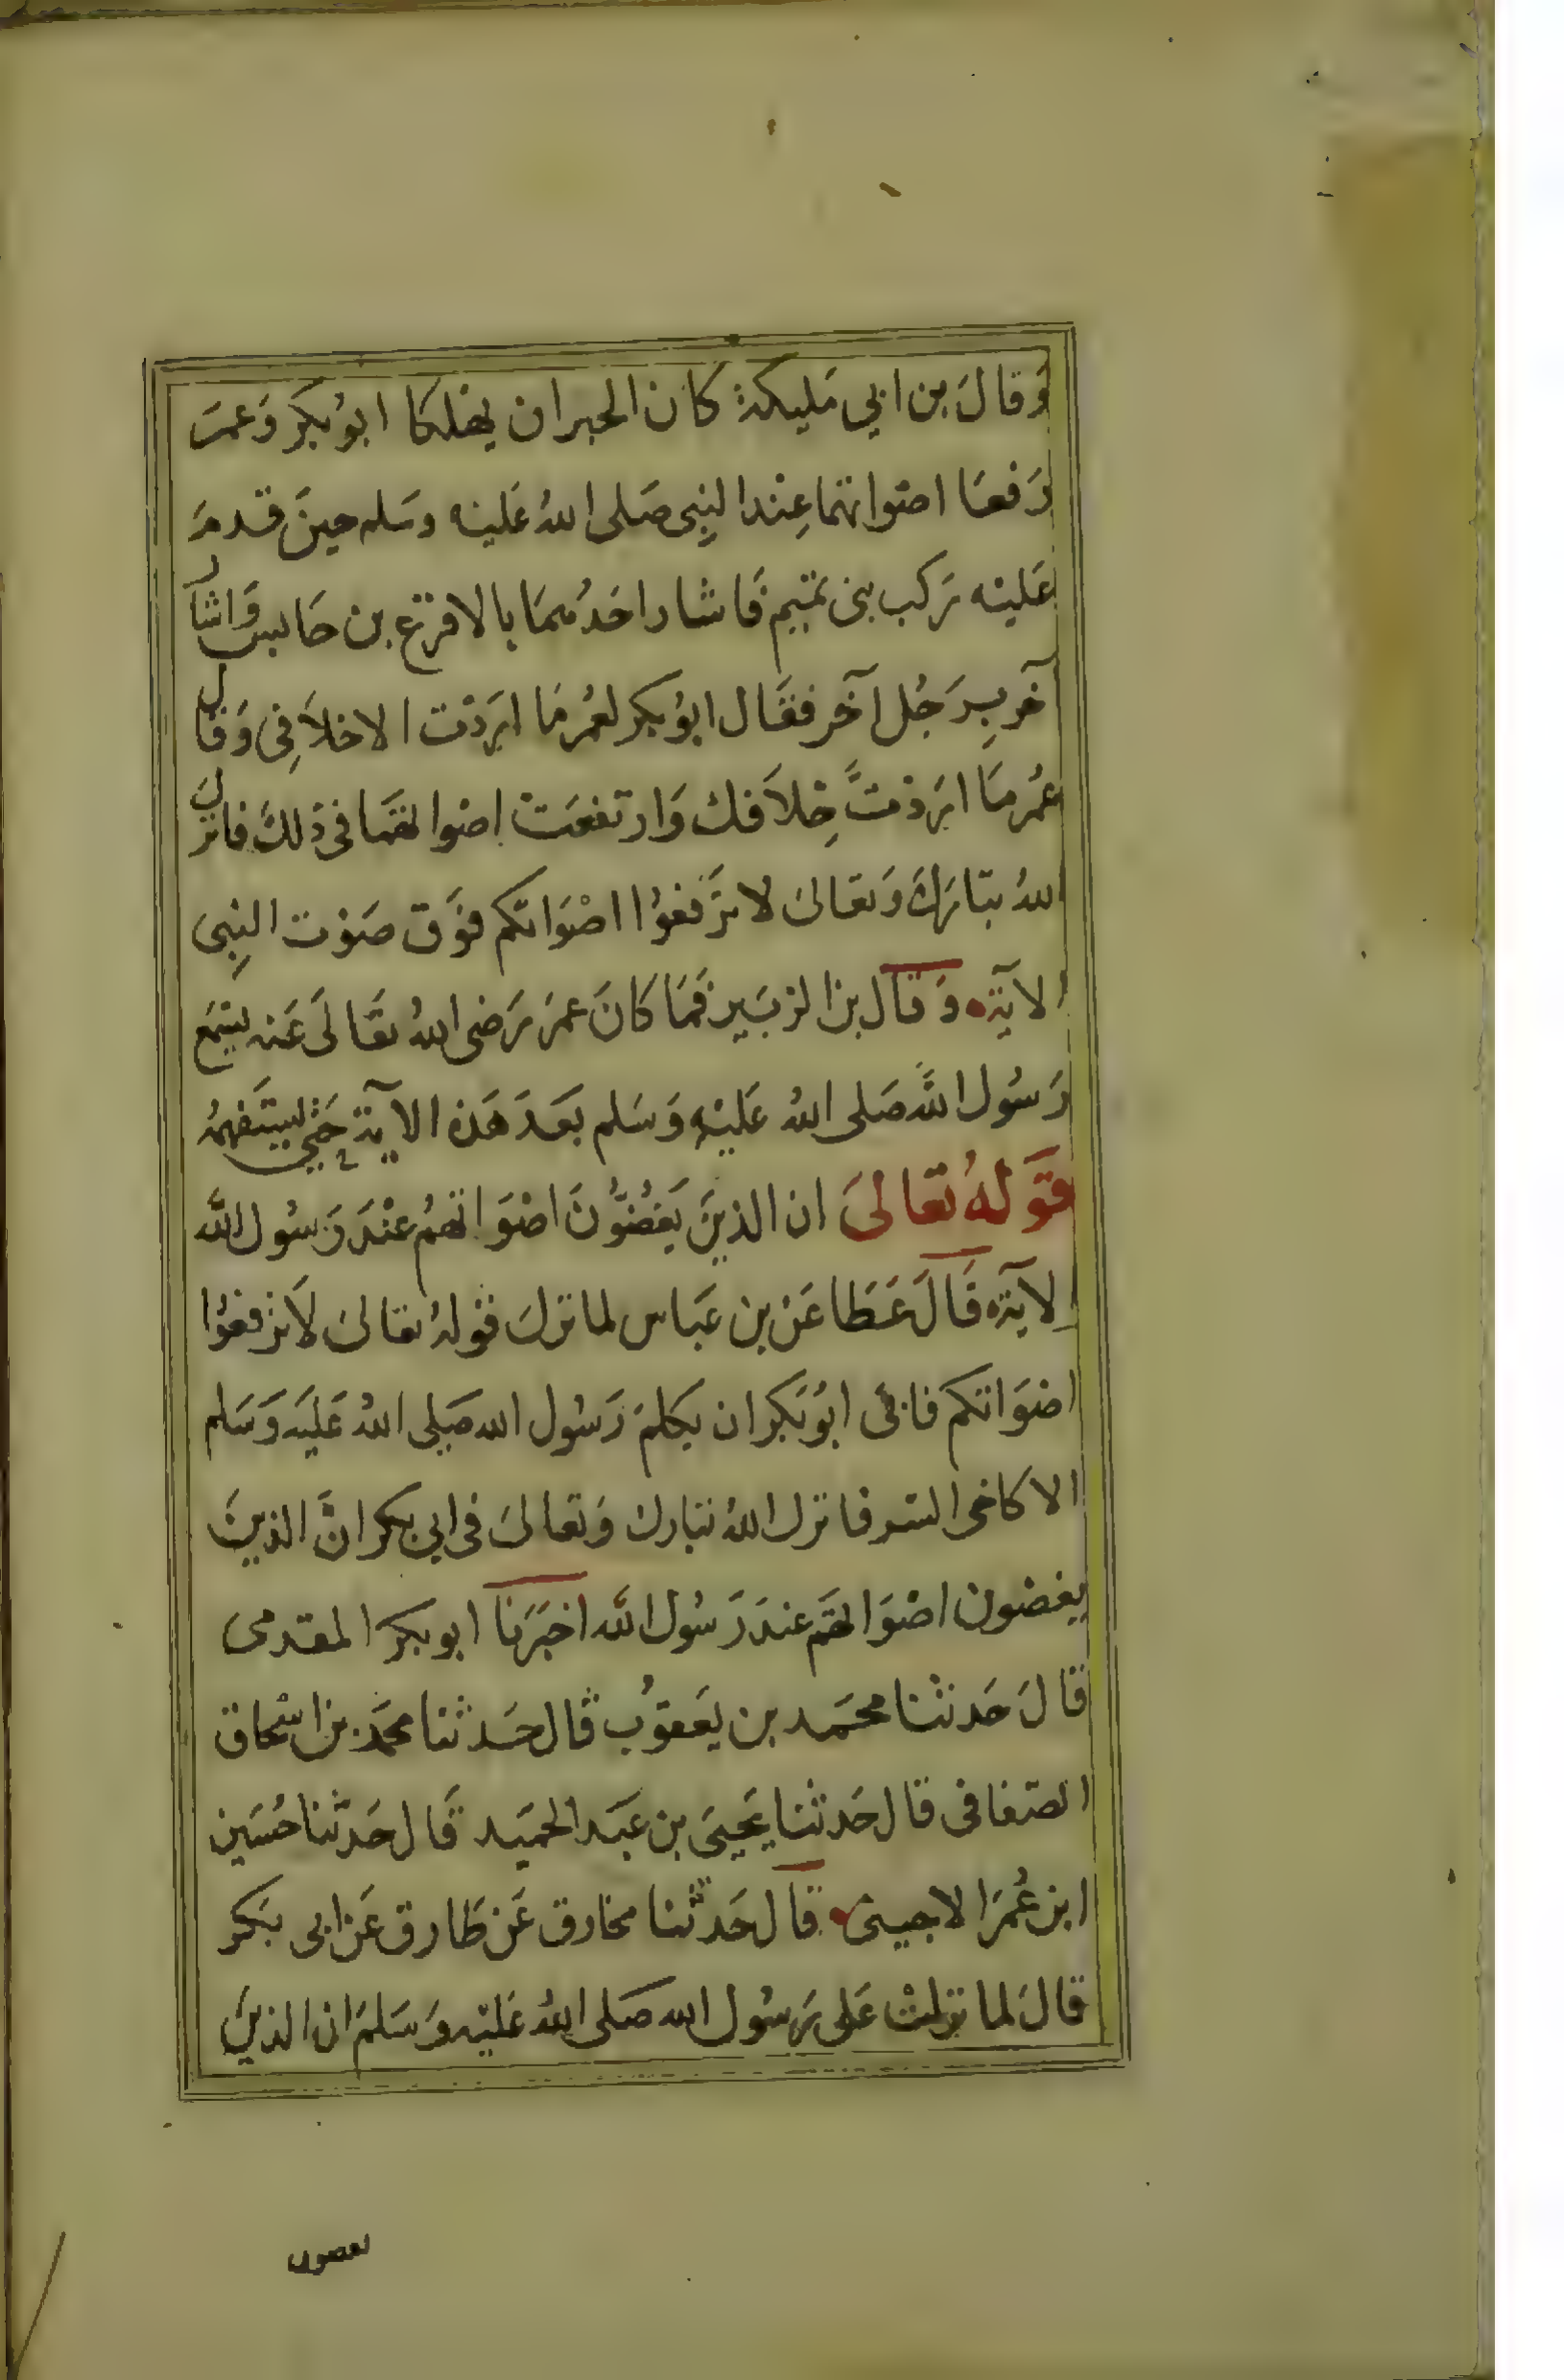 وَقالَ بن ابي مَليكة كان الحبران يهلكا ابوُ بكرَ وَعمَرَ
رَفعَا اصَواتهما عِنْد النبِي صَلى اللهُ عَلينه وسَلم حينَ قدمَ
عَلينه رَكب بنى تميم فَاشار احَدُهمَا بالاقرَع بن حَابس وَاشار
آخر بِرَجُل آخَر فقَال ابوُ بكر لعُمر مَا ارَدْت الا خلاَفِى وَقال
عُمر مَا ارَدْتَ خِلاَفك وَارتفعَتْ اصْواتهمَا فى ذلكَ فانزلَ
اللهُ تبَارَكَ وَتعَالىَ لا ترَفعوُا اصْوَاتكم فوَق صَوْت النبِى
الآية وَقال بن الزبَير فمَا كانَ عمَر رَضى اللهُ تعَالىَ عَنه يسْمع
رَسُول اللهَ صَلى اللهُ عَليْهِ وَسَلم بعَدَ هَذه الآية حَتى ليستَفهمهُ
قوَلهُ تعَالىَ ان الذينَ يَغُضُّونَ اصْوَاتهمُ عنْدَ رَسُول اللَّه
الآية قَالَ عَطَا عَن بن عَباس لما نزلَ قوْلهُ تعَالىَ لاَ ترْفعوُا
اصْوَاتكم فابىَ ابوُ بَكر ان يكلمَ رَسُول الله صَلى اللهُ عَليَه وَسَلم
الا كاخى السر فانزل اللهُ تبارك وَتعَالىَ فى ابي بكر انَّ الذينَ
يغضون اصْوَاتهَم عندَ رَسُول اللَّه اخبَرَنا ابو بكر المقدمىَ
قالَ حَدثنْا محمَد بن يَعقوُب قال حَدثنا محمَّد بن اسْحَاق
الصغانى قال حَدثنا يَحيىَ بن عَبَد الحميَد قَال حَدثنا حُسَين
ابن عُمَر الاحمسى قال حَدثنا مخارق عَن طَارق عَن ابى بَكر
قالَ لما نزلتْ عَلى رَسوُل الله صَلى اللهُ عَليْه وَسَلمَ ان الذينَ
يغضون